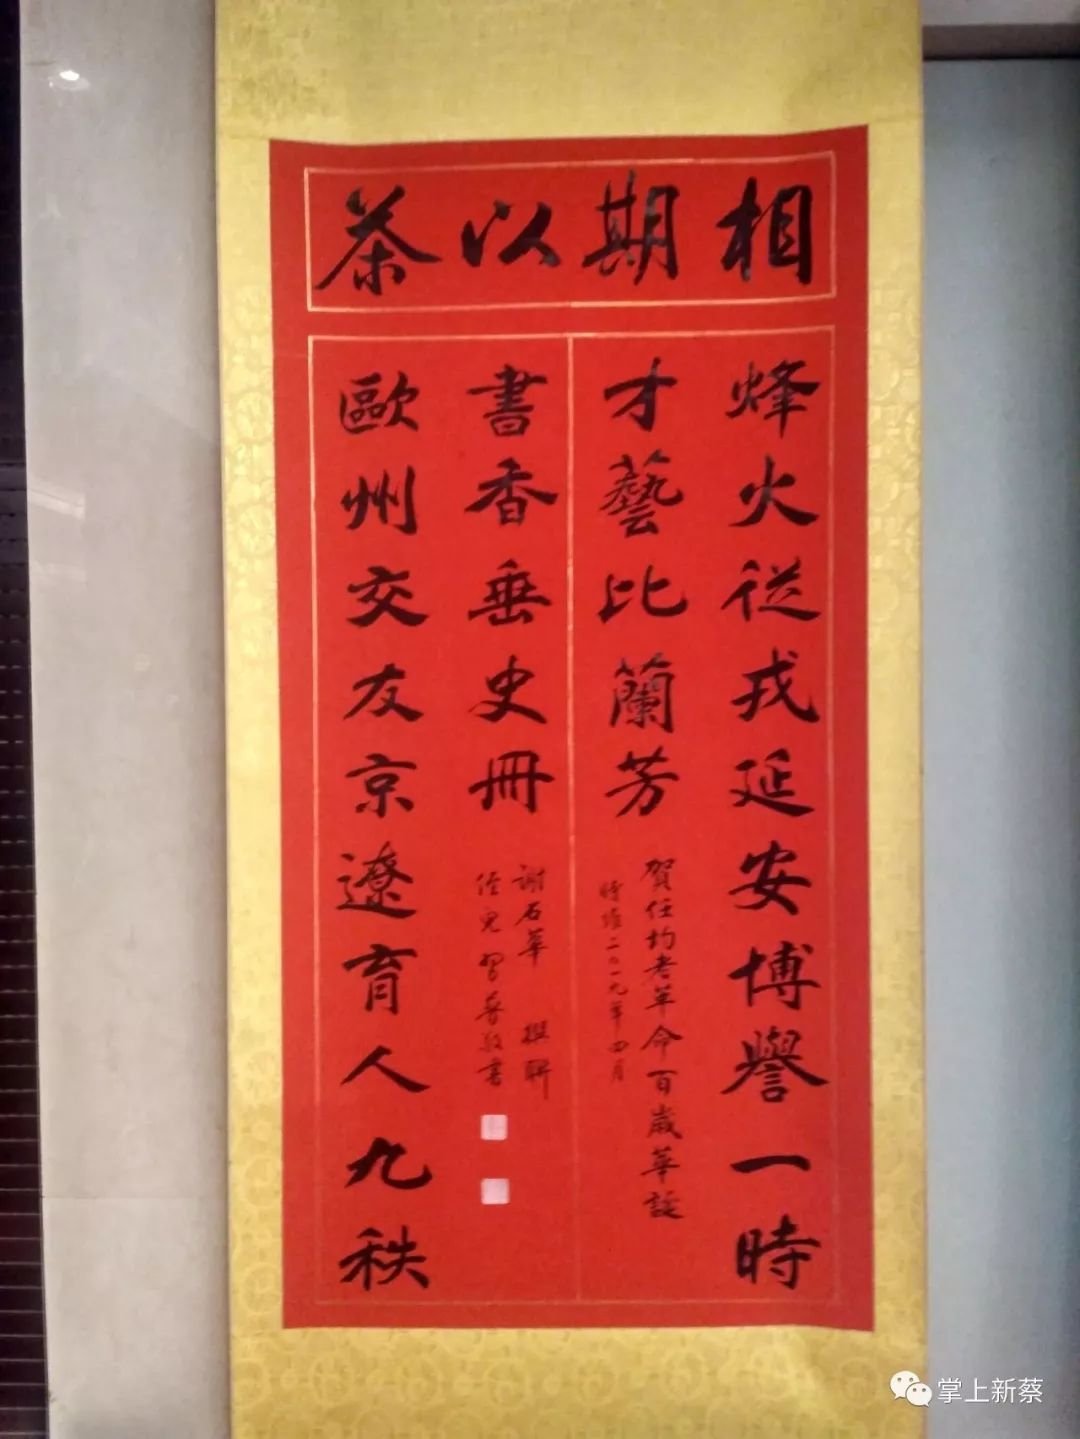 相期以茶
烽火從戎延安博譽一時
才藝比蘭芳
賀任均老革命百歲華誕
時維二〇一九年四月
歐州交友京遼育人九秩
書香垂史冊
謝石華 撰聯
掌上新蔡